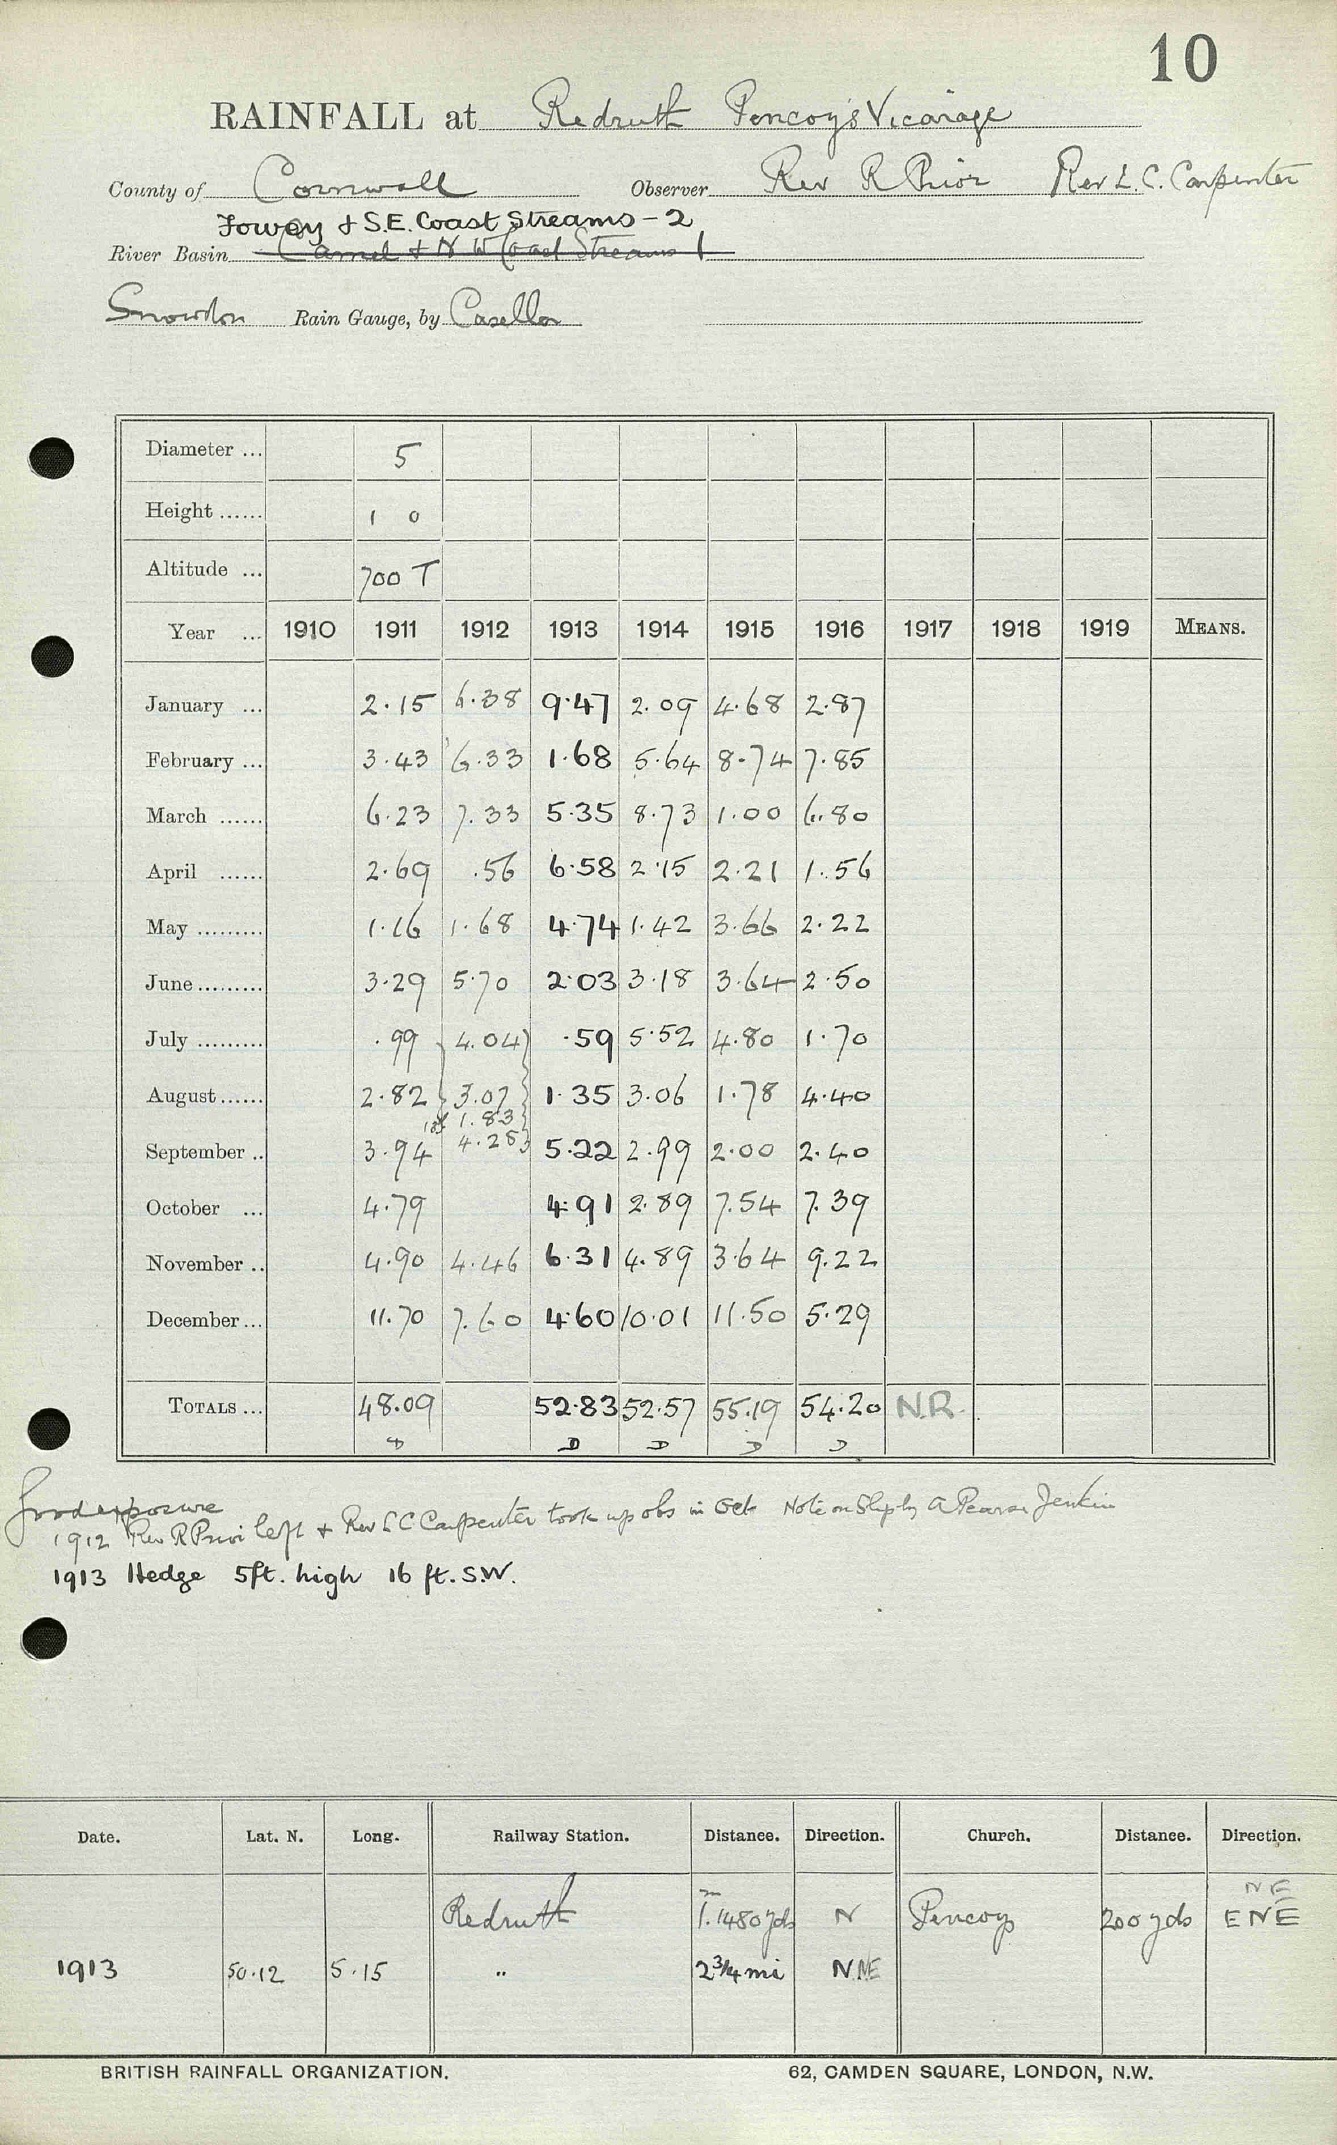 10
RAINFALL at Redruth Pencoys Vicarage
County of Cornwall Observer Rev R Prior Rev L. C. Carpenter
Fowey & S.E. Coast Streams - 2
River Basin Camel & N W Coast Streams 1
Snowdon Rain Gauge, by Casella
Diameter ... 5
Height ...... 1 0
Altitude ... 700 T
Year ... 1910 1911 1912 1913 1914 1915 1916 1917 1918 1919 MEANS.
January ... 2.15 6.38 9.47 2.09 4.68 2.87
February ... 3.43 6.33 1.68 5.64 8.74 7.85
March ...... 6.23 7.33 5.35 8.73 1.00 6.80
April ...... 2.69 .56 6.58 2.15 2.21 1.56
May ......... 1.16 1.68 4.74 1.42 3.66 2.22
June ......... 3.29 5.70 2.03 3.18 3.64 2.50
July ......... .99 4.04 .59 5.52 4.80 1.70
August ...... 2.82 3.07 1.35 3.06 1.78 4.40
1st 1.83
September .. 3.94 4.28 5.22 2.99 2.00 2.40
October ... 4.79 4.91 2.89 7.54 7.39
November .. 4.90 4.46 6.31 4.89 3.64 9.22
December ... 11.70 7.60 4.60 10.01 11.50 5.29
TOTALS ... 48.09 52.83 52.57 55.19 54.20 N.R.
D D D D D
Good exposure
1912 Rev R Prior left & Rev L C Carpenter took up obs in Oct Note on Slip by A Pearse Jenkin
1913 Hedge 5ft. high 16 ft. S.W.
Date. Lat. N. Long. Railway Station. Distance. Direction. Church. Distance. Direction.
m NE
Redruth 1.1480 yds N Pencoys 200 yds ENE
1913 50.12 5.15 " 2¾ mi NNE
BRITISH RAINFALL ORGANIZATION. 62, CAMDEN SQUARE, LONDON, N.W.